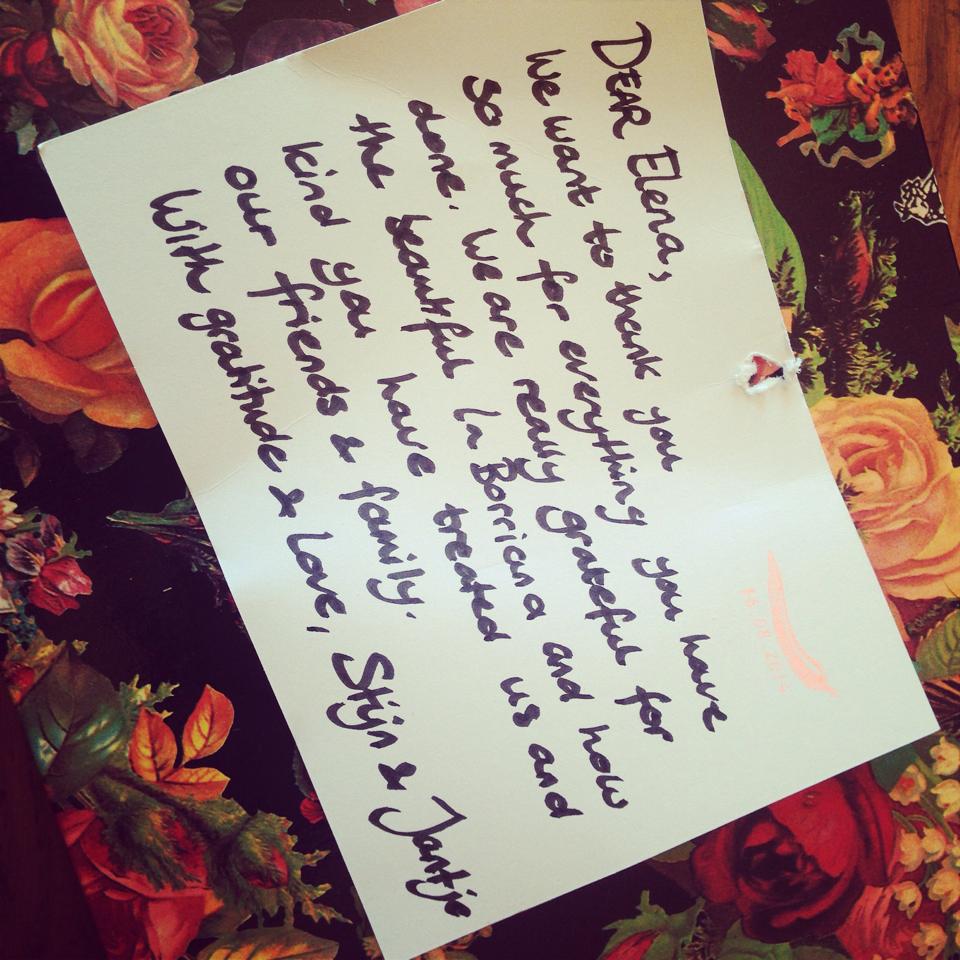 DEAR Elena,
We want to thank you
so much for everything you have
done. We are really grateful for
the beautiful La Borriana and how
kind you have treated us and
our friends & family.
With gratitude & Love, Stijn & Jantje